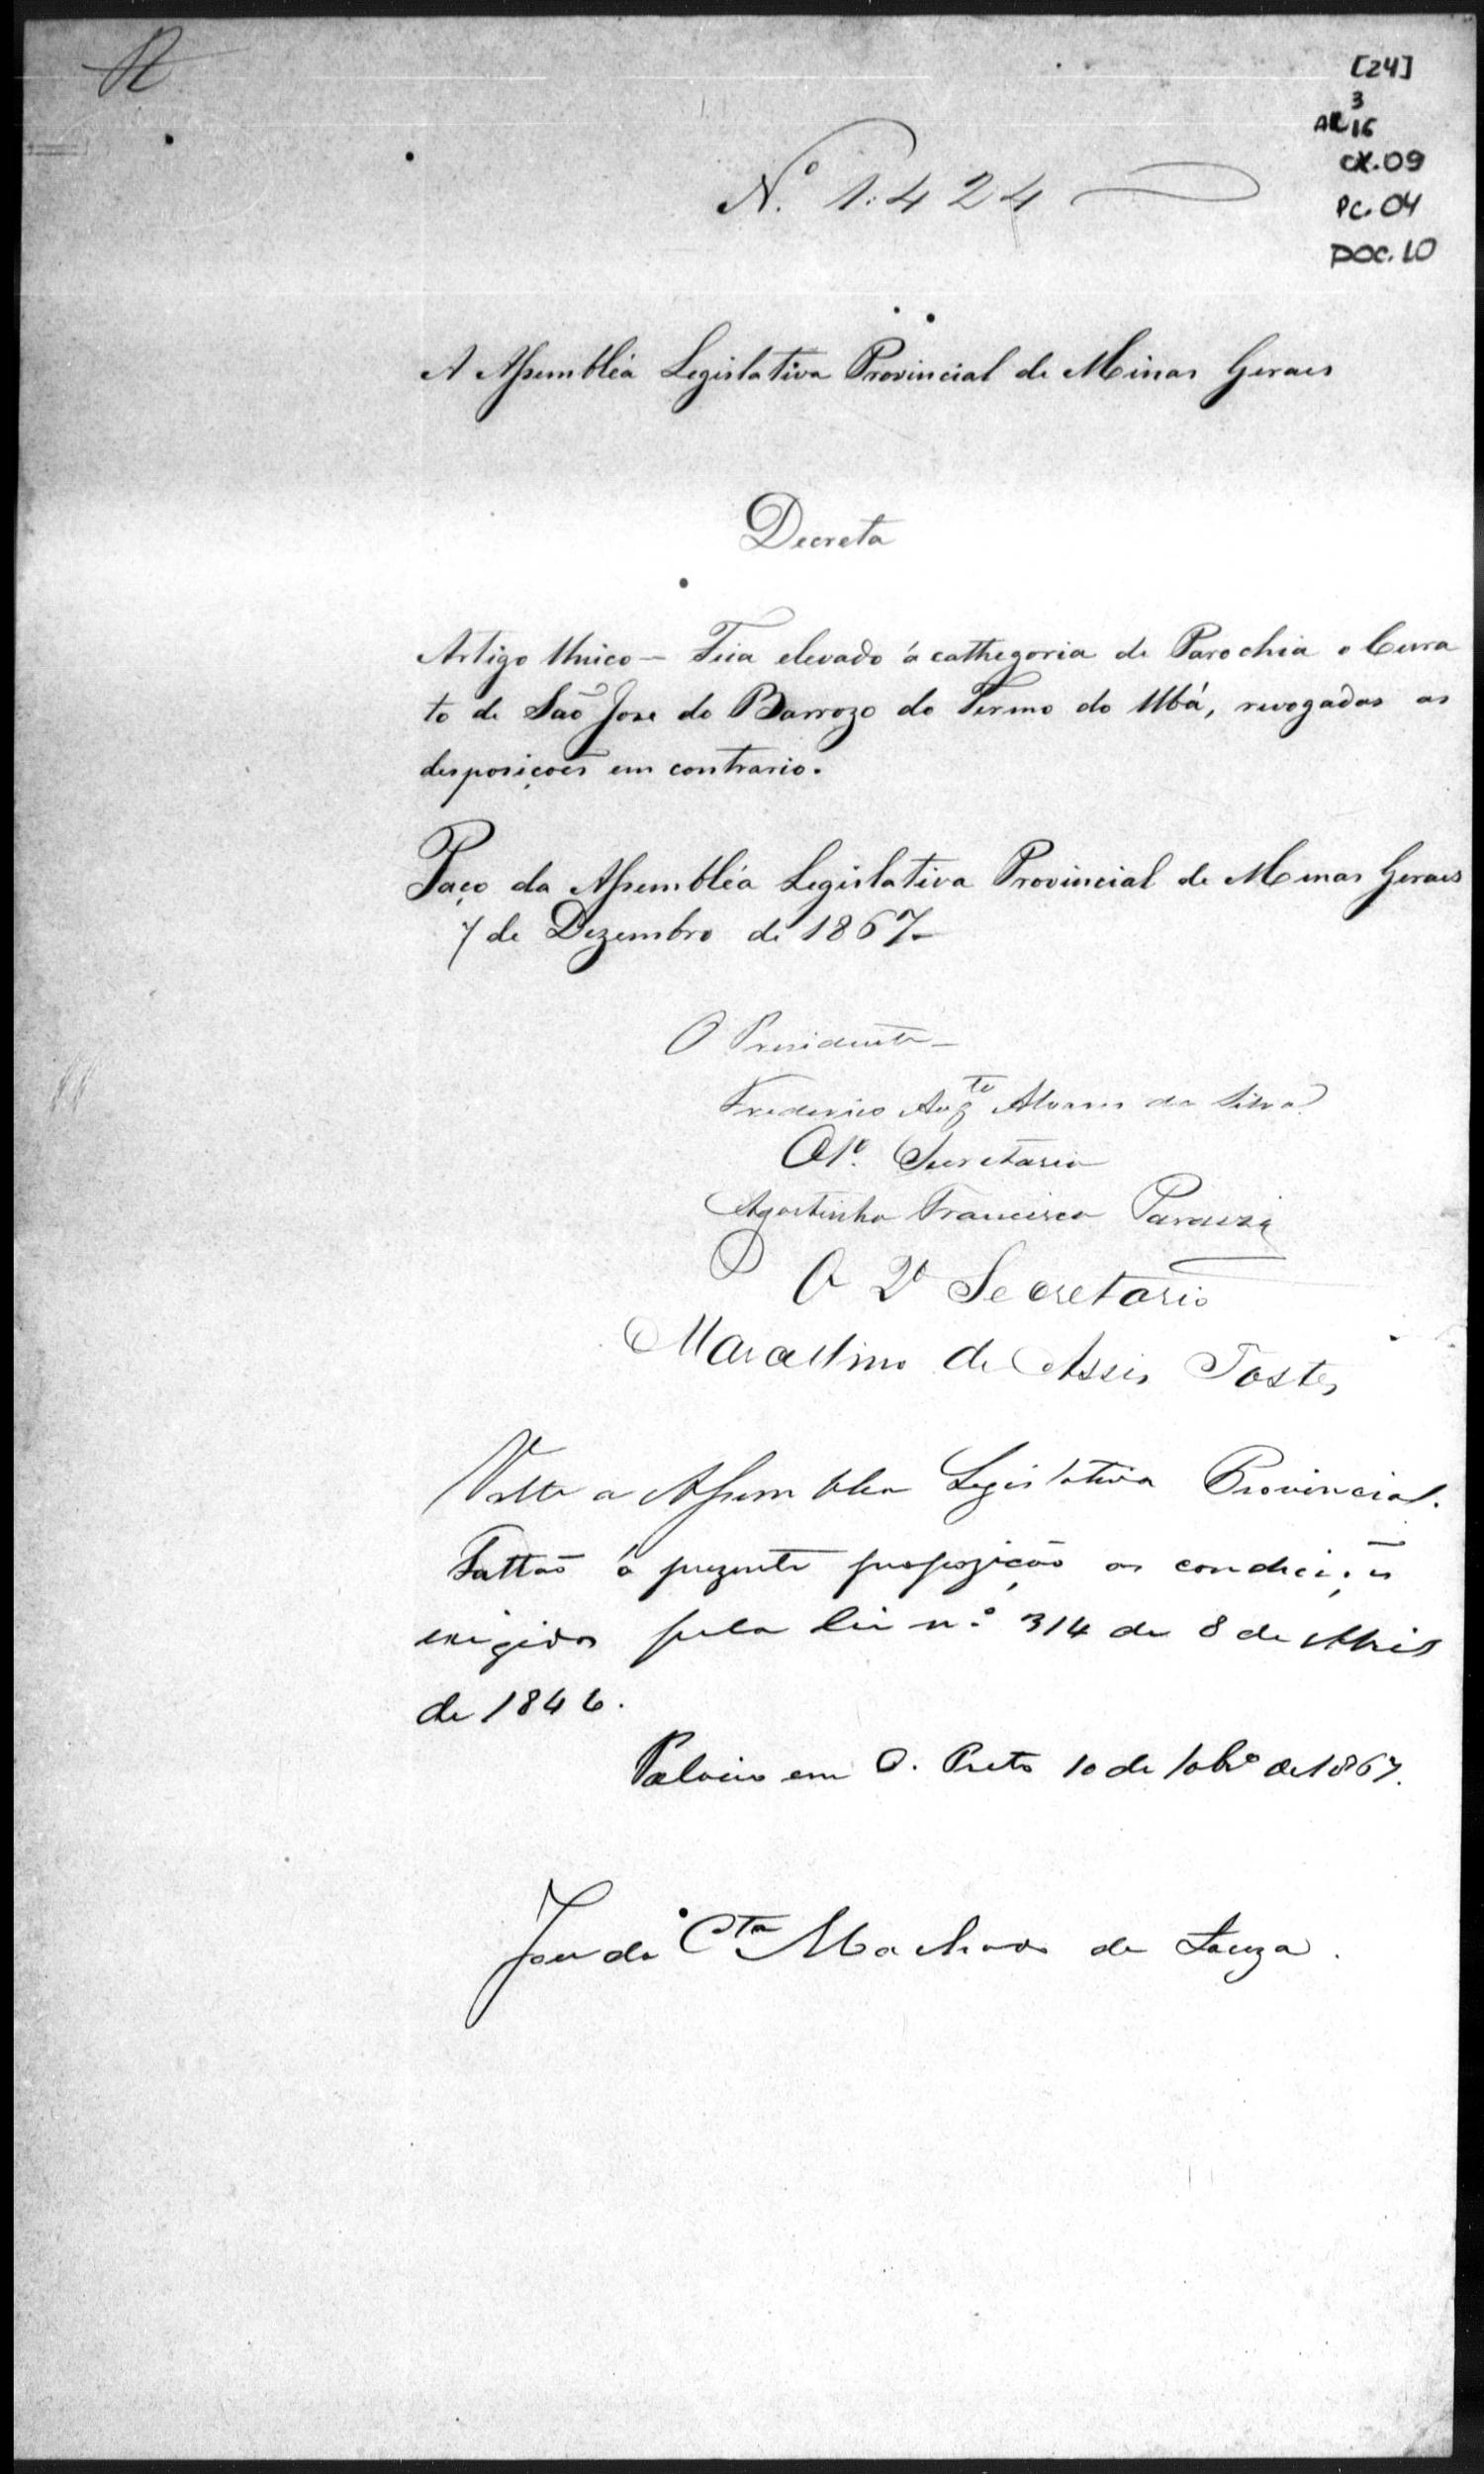 [24]
3
AL 16
CX. 09
PC. 04
DOC. 10
Nº 1:424
A Assembléa Legislativa Provincial de Minas Geraes
Decreta
Artigo Unico — Fica elevado á cathegoria de Parochia o Cura
to de São Jose do Barrozo do Termo do Ubá, revogadas as
desposiçoẽs em contrario.
Paço da Assembléa Legislativa Provincial de Minas Geraes
7 de Dezembro de 1867 –
O Presidente –
Frederico Augto Alvares da Silva
O 1º. Secretario
Agostinho Francisco
O 2º Secretario
Marcellino de Assis Tostes
Volte a Assemblea Legislativa Provincial.
Faltão á prezente propozição as condições
exigidas pela lei n.º 314 de 8 de Abril
de 1846.
Palacio em O. Preto 10 de 10bro de 1867.
José da Cta Machado de Souza.